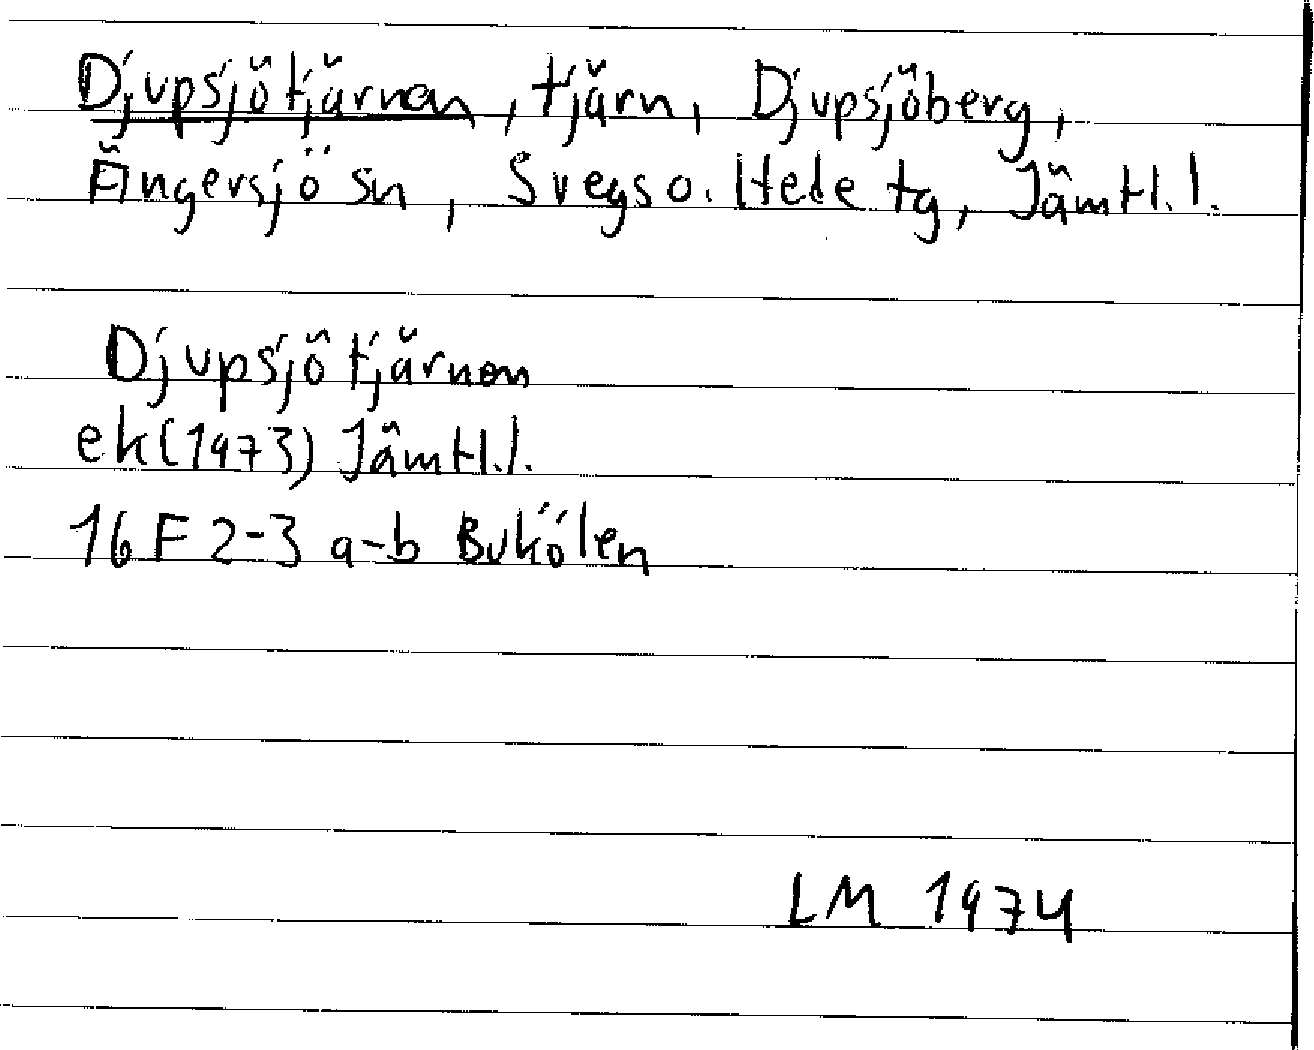 Djupsjötjärnen, tjärn, Djupsjöberg,
Ängersjö sn, Svegs o. Hede tg, Jämtl. l.
Djupsjötjärnen
ek (1973) Jämtl. l.
16 F 2-3 a-b Bukölen
LM 1974